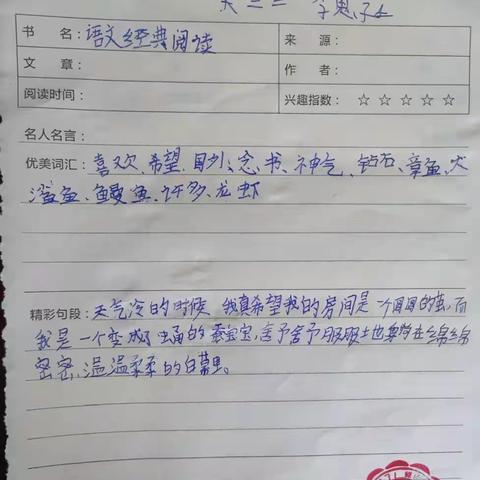 书 名：语文经典阅读 来 源：
文 章： 作 者：
阅读时间： 兴趣指数：☆ ☆ ☆ ☆ ☆
名人名言：
优美词汇：喜欢、希望、国外、念、书、神气、钻石、章鱼、大
鲨鱼、鳗鱼、许多、龙虾
精彩句段：天气冷的时候，我真希望我的房间是一个圆圆的茧，而
我是一个变成了蛹的蚕宝宝，舍予舍予服服土也躺在绵绵
密密，温温柔柔的白幕里。